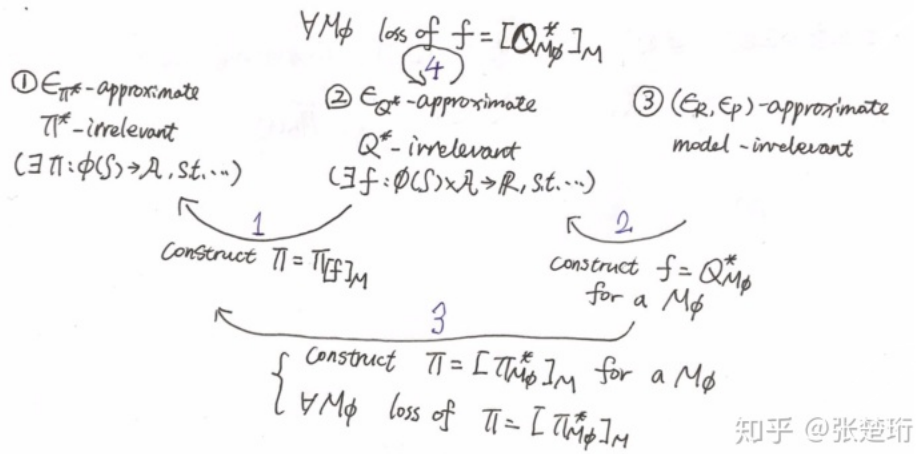 ∀Mϕ loss of f = [Q*Mϕ]M
4
① ϵπ*-approximate
π*-irrelevant
(∃π:ϕ(S)→A, s.t. ...)
② ϵQ*-approximate
Q*-irrelevant
(∃f:ϕ(S)×A→R, s.t. ...)
③ (ϵR, ϵP)-approximate
model-irrelevant
1
construct π = π[f]M
2
construct f = Q*Mϕ
for a Mϕ
3
{ construct π = [π*Mϕ]M for a Mϕ
∀Mϕ loss of π = [π*Mϕ]M
知乎 @张楚珩